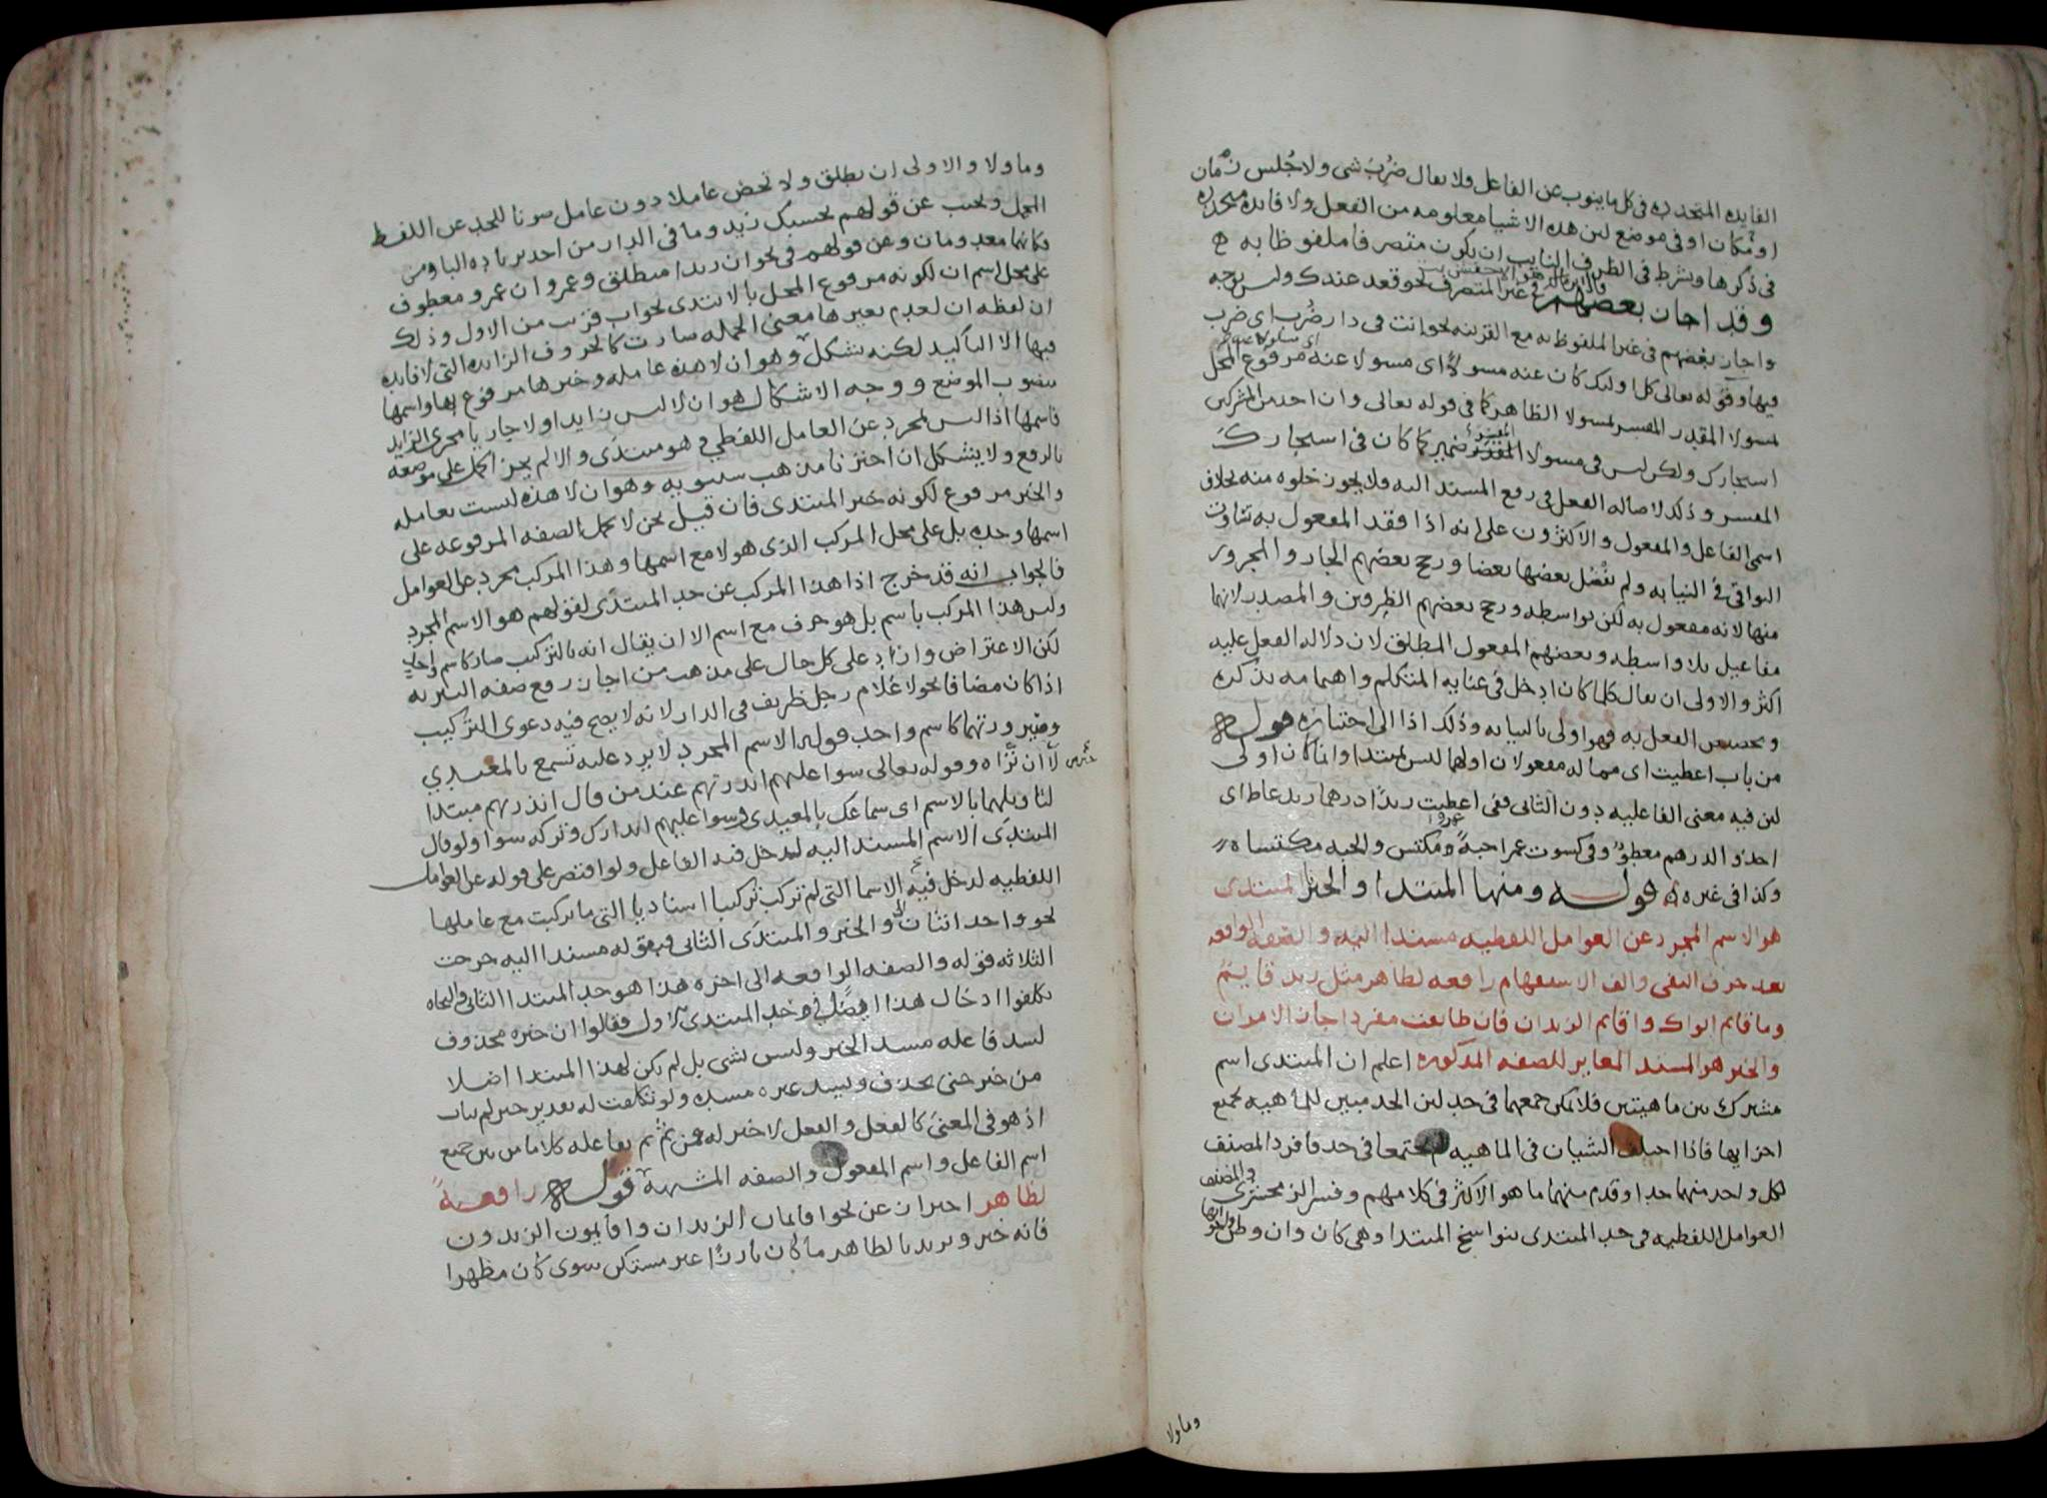 الفايده المتجدده فى كل ما ينوب عن الفاعل فلا يقال ضُرِبَ شى ولا جُلس زمان
او مكان او فى موضع لان هذه الاشيا معلومه من الفعل ولا فايده متجدده
فى ذكرها ويشرط فى الظرف النايب ان يكون متصرفا ملفوظا به
وقد اجاز بعضهم فى غير المتصرف نحو قعد عندك وليس بوجه
واجاز بعضهم فى غير الملفوظ به مع القرينه نحو انت فى دار ضُرب اى ضرب
فيها وقوله تعالى كل اوليك كان عنه مسولا اى مسولا عنه مرفوع المحل
لمسولا المقدر المفسر لمسولا الظاهر كما فى قوله تعالى وان احد من المشركين
استجارك ولكن ليس فى مسولا المفسر ضمير كما كان فى استجارك
المفسر وذلك لاصاله الفعل فى رفع المسند اليه فلا يجوز خلوه منه بخلاف
اسمى الفاعل والمفعول والاكثرون على انه اذا فقد المفعول به تساوت
البواقى فى النيابه ولم يفضل بعضها بعضا ورجح بعضهم الجار والمجرور
منها لانه مفعول به لكن بواسطه ورجح بعضهم الظرفين والمصدر لانها
مفاعيل بلا واسطه وبعضهم المفعول المطلق لان دلاله الفعل عليه
اكثر والاولى ان يقال كلما كان ادخل فى عنايه المتكلم واهتمامه بذكره
وتخصيص الفعل به فهو اولى بالنيابه وذلك اذا الى اختياره قوله
من باب اعطيت اى مما له مفعولان اولهما ليس بمبتدا وانما كان اولى
لان فيه معنى الفاعليه دون الثانى ففى اعطيت زيدًا درهما زيد عاط اى
اخذ والدرهم معطوّ وفى كسوت عمرا جبةً عمرو مكتس والجبه مكتساه
وكذا فى غيره قوله ومنها المبتدا والخبر المبتدى
هو الاسم المجرد عن العوامل اللفظيه مسندا اليه والصفه الواقعه
بعد حرف النفى والف الاستفهام رافعه لظاهر مثل زيد قايم
وما قايم ابواك واقايم الزيدان فان طابقت مفردا جاز الامران
والخبر هو المسند المغاير للصفه المذكوره اعلم ان المبتدى اسم
مشترك بين ماهيتين فلا يمكن جمعهما فى حد لان الحد مبين للماهيه بجميع
اجزايها فاذا اختلف الشيان فى الماهيه لم يجتمعا فى حد فافرد المصنف
لكل واحد منهما حدا وقدم منهما ما هو الاكثر فى كلامهم وفسر الزمخشرى والمصنف
العوامل اللفظيه فى حد المبتدى بنواسخ المبتدا وهى كان وان وظن واخواتها
وما ولا
وما ولا والاولى ان يطلق ولا تخص عاملا دون عامل صونا للحد عن اللفظ
المجمل ويجب عن قولهم بحسبك زيد وما فى الدار من احد بزياده الباو من
فكانهما معدومان وعن قولهم فى نحو ان زيدا منطلق وعمرو ان عمرو معطوف
على محل اسم ان لكونه مرفوع المحل بالابتدى بجواب قريب من الاول وذلك
ان لفظه ان لعدم تغييرها معنى الجمله صارت كالحروف الزايده التى لا فايده
فيها الا التاكيد لكنه يشكل وهو ان لا هذه عامله وخبرها مرفوع بها واسمها
منصوب الموضع ووجه الاشكال هو ان لا ليس زايدا ولا جاريا مجرى الزايد
فاسمها اذا ليس بمجرد عن العامل اللفظى فهو مبتدى والا لم يجز الحمل على موضعه
بالرفع ولا يشكل ان اخترنا مذهب سيبويه وهو ان لا هذه ليست بعامله
والخبر مرفوع لكونه خبر المبتدى فان قيل نحن لا نحمل الصفه المرفوعه على
اسمها وحده بل على محل المركب الذى هو لا مع اسمها وهذا المركب مجرد عن العوامل
فالجواب انه قد خرج اذا هذا المركب عن حد المبتدى لقولهم هو الاسم المجرد
وليس هذا المركب باسم بل هو حرف مع اسم الا ان يقال انه بالتركيب صار كاسم واحد
لكن الاعتراض وارد على كل حال على مذهب من اجاز رفع صفه النكره
اذا كان مضافا نحو لا غلام رجل ظريف فى الدار لانه لا يصح فيه دعوى التركيب
وصيرورتهما كاسم واحد قوله الاسم المجرد لا يرد عليه تسمع بالمعيدى
خير من لا ان تراه وقوله تعالى سوا عليهم انذرتهم عند من قال انذرتهم مبتدا
لتاويلهما بالاسم اى سماعك بالمعيدى وسوا عليهم انذارك وتركه سوا ولو قال
المبتدى الاسم المسند اليه لدخل فيه الفاعل ولو اقتصر على قوله عن العوامل
اللفظيه لدخل فيه الاسما التى لم تركب تركيبا اسناديا التى ما تركبت مع عاملها
نحو واحد اثنان والخبر والمبتدى الثانى فبقوله مسندا اليه خرجت
الثلاثه قوله والصفه الواقعه الى اخره هذا هو حد المبتدا الثانى والنحاه
تكلفوا ادخال هذا ايضًا فى حد المبتدى الاول فقالوا ان خبره محذوف
لسد فاعله مسد الخبر وليس بشى بل لم يكن لهذا المبتدا اصلا
من خبر حتى يحذف ويسد غيره مسده ولو تكلفت له تقدير خبر لم يتات
اذ هو فى المعنى كالفعل والفعل لا خبر له فمن ثم تم بفاعله كلاما من بين جميع
اسم الفاعل واسم المفعول والصفه المشبهه قوله رافعه
لظاهر احتراز عن نحو اقايمان الزيدان واقايمون الزيدون
فانه خبر ويريد بالظاهر ما كان بارزًا غير مستكن سوى كان مظهرا